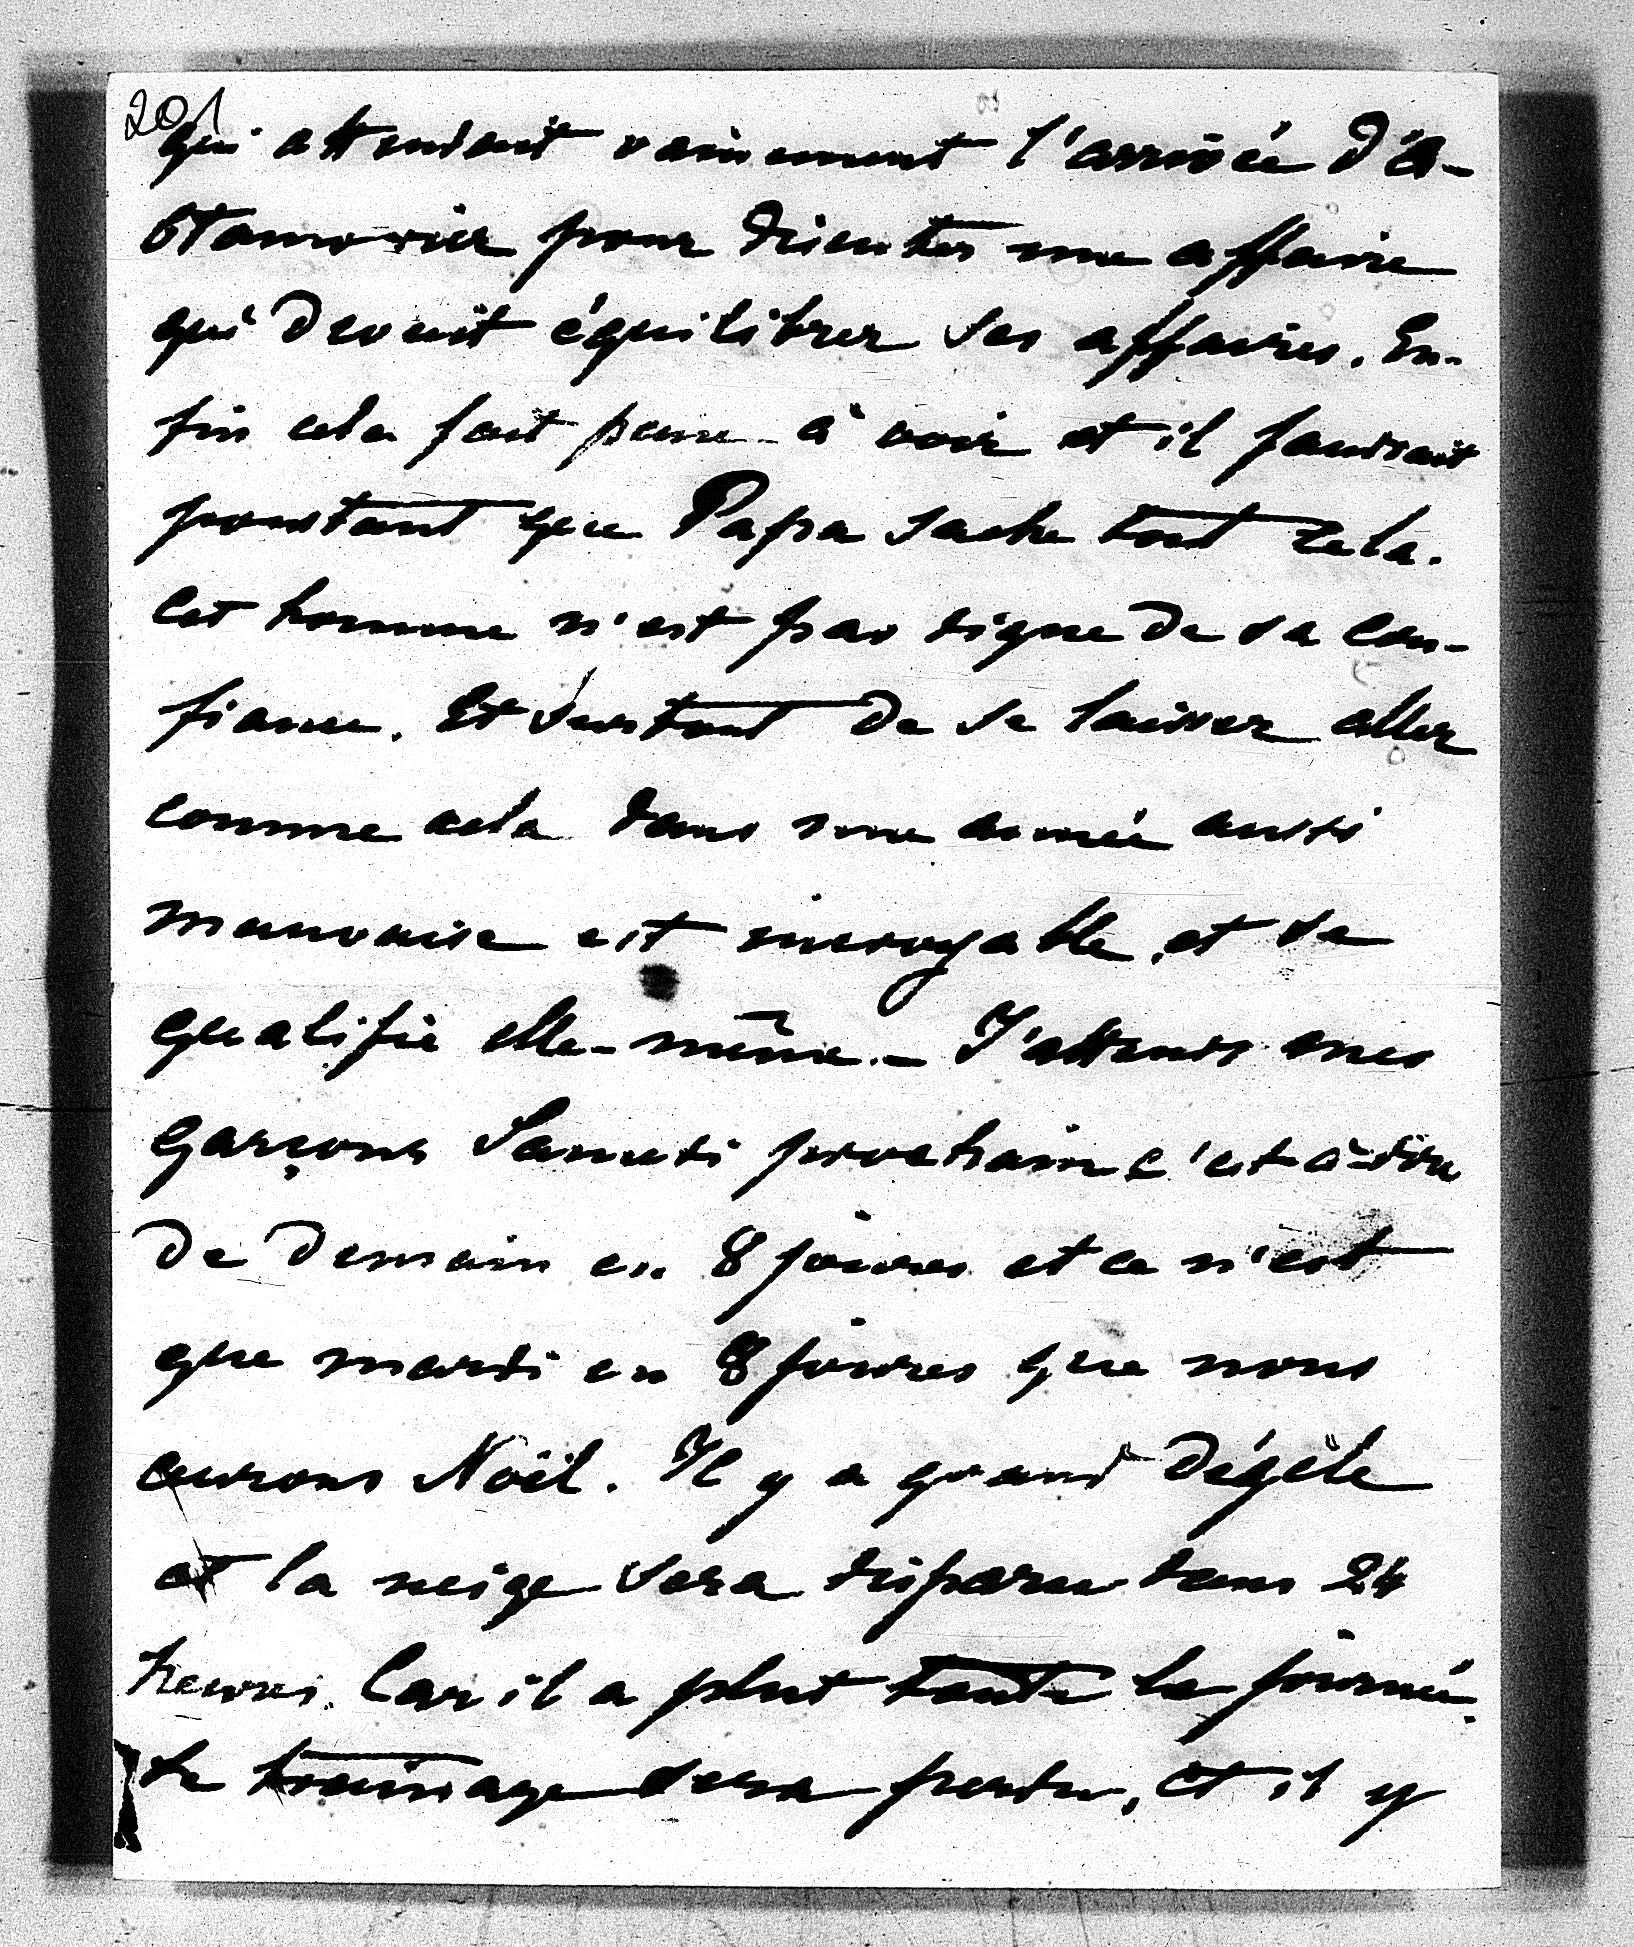 201
qui attendait vainement l'arrivée d'A-
btamowicz pour discuter une affaire
qui devait équilibrer ses affaires. En-
fin cela fait peine à voir et il faudrait
pourtant que Papa sache tout cela.
Cet homme n'est pas digne de sa con-
fiance. Et surtout de se laisser aller
comme cela dans une année aussi
mauvaise est incroyable, et se
qualifie elle-même. – J'attends mes
garçons Samedi prochain c'est-à-dire
de demain en 8 jours et ce n'est
que mardi en 8 jours que nous
aurons Noël. Il y a grand dégèle
et la neige sera disparue dans 24
heures. Car il a plut toute la journée.
Le traînage sera perdu, et il y